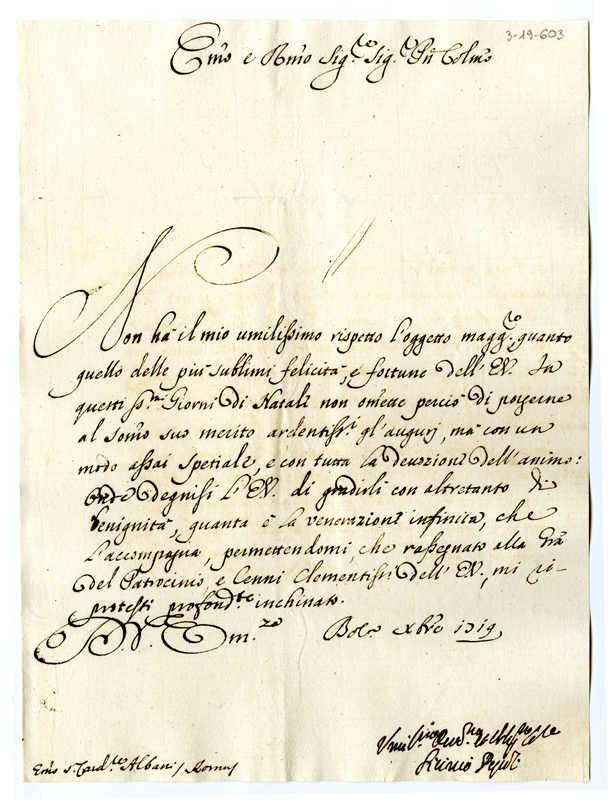 3-19-603
Emo e Rmo Sig.re Sig.r Pñ Colmo
Non ha il mio umilissimo rispetto l'oggetto magg.re quanto
quello delle più sublimi felicità, e fortune dell'EV. In
questi SS.mi Giorni di Natale non omette perciò di porgerne
al somo suo merito ardentiss.i gl'augurj, mà con un
modo assai spetiale, e con tutta la devozione dell'animo:
onde degnisi l'EV. di gradirli con altretanto di
benignità, quanta è la venerazione infinita, che
l'accompagna, permettendomi, che rassegnato alla Grã
del Patrocinio, e Cenni Clementiss.i dell'EV., mi ri-
protesti profond.te inchinato.
D. V. Em.za Bol.a Xbre 1719
Umil.mo
Emo S.r Card.le Albani / Roma /